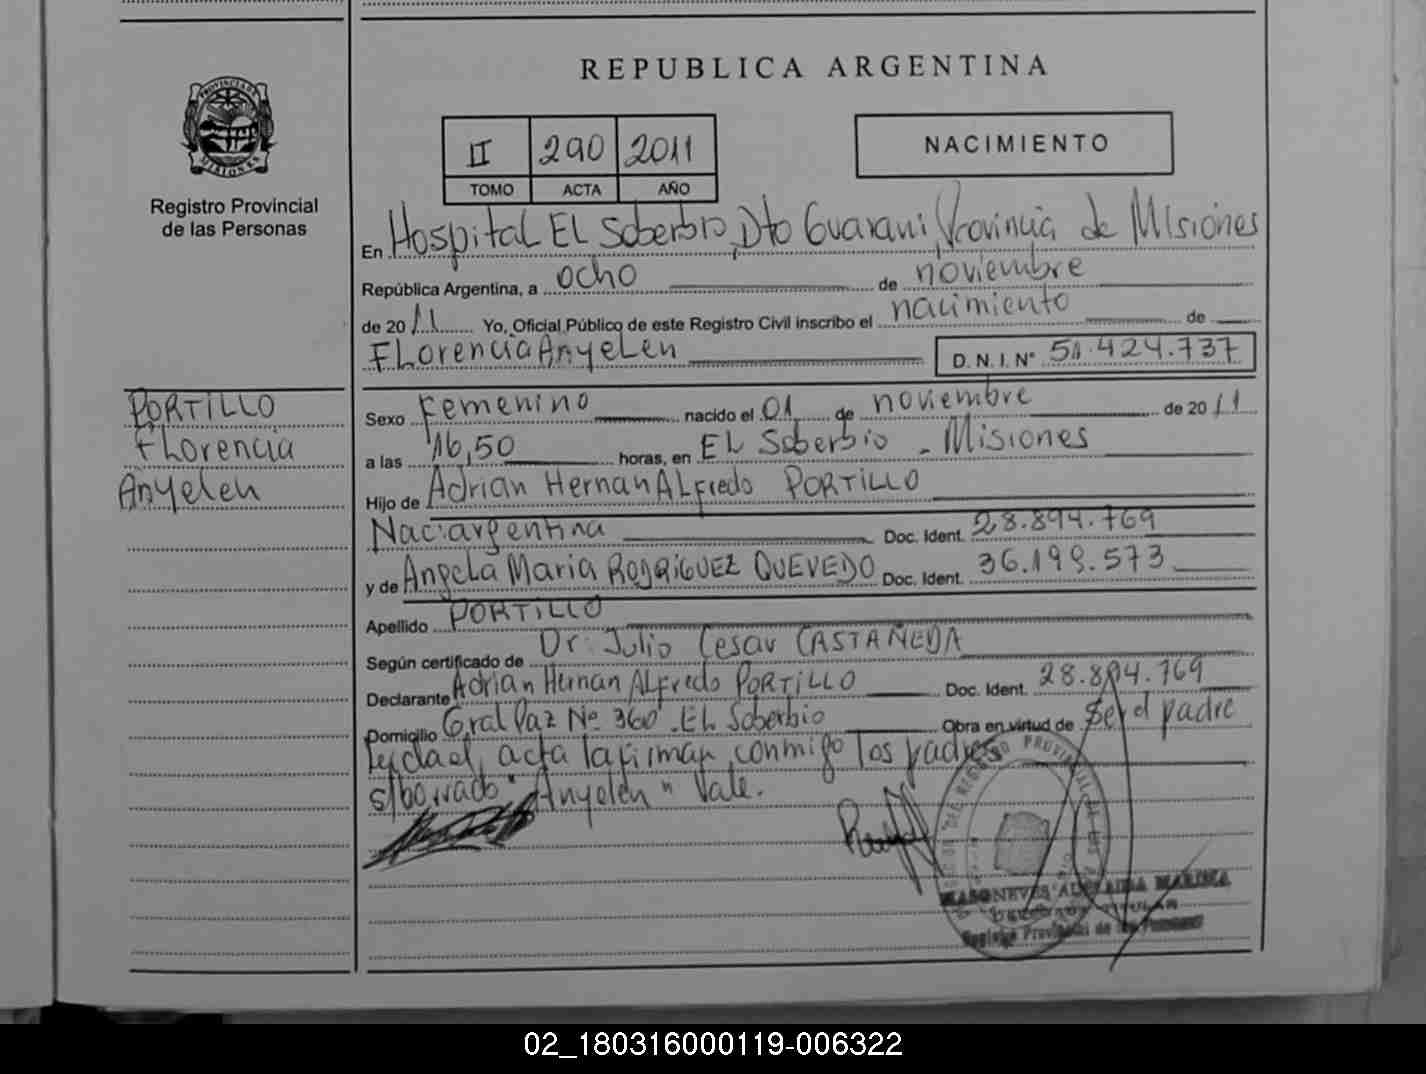 REPUBLICA ARGENTINA
PROVINCIA DE
MISIONES
Registro Provincial
de las Personas
II 290 2011
TOMO ACTA AÑO
NACIMIENTO
En Hospital El Soberbio, Dto Guarani, Provincia de Misiones
República Argentina, a ocho de noviembre
de 2011 Yo, Oficial Público de este Registro Civil inscribo el nacimiento de
Florencia Anyelen D. N. I. Nº 51.424.737
PORTILLO
Florencia
Anyelen
Sexo Femenino nacido el 01 de noviembre de 2011
a las 16,50 horas, en El Soberbio - Misiones
Hijo de Adrian Hernan Alfredo PORTILLO
Nac: argentina Doc. Ident. 28.894.769
y de Angela Maria RODRIGUEZ QUEVEDO Doc. Ident. 36.199.573
Apellido PORTILLO
Según certificado de Dr: Julio Cesar CASTAÑEDA
Declarante Adrian Hernan Alfredo PORTILLO Doc. Ident. 28.894.769
Domicilio Gral Paz Nº 360 El Soberbio Obra en virtud de ser el padre
Leida el acta la firman conmigo los padres
s/borrado "Anyelen" Vale.
REGISTRO PROVINCIAL DE LAS
MARINA
TITULAR
Registro Provincial de las Personas
02_180316000119-006322